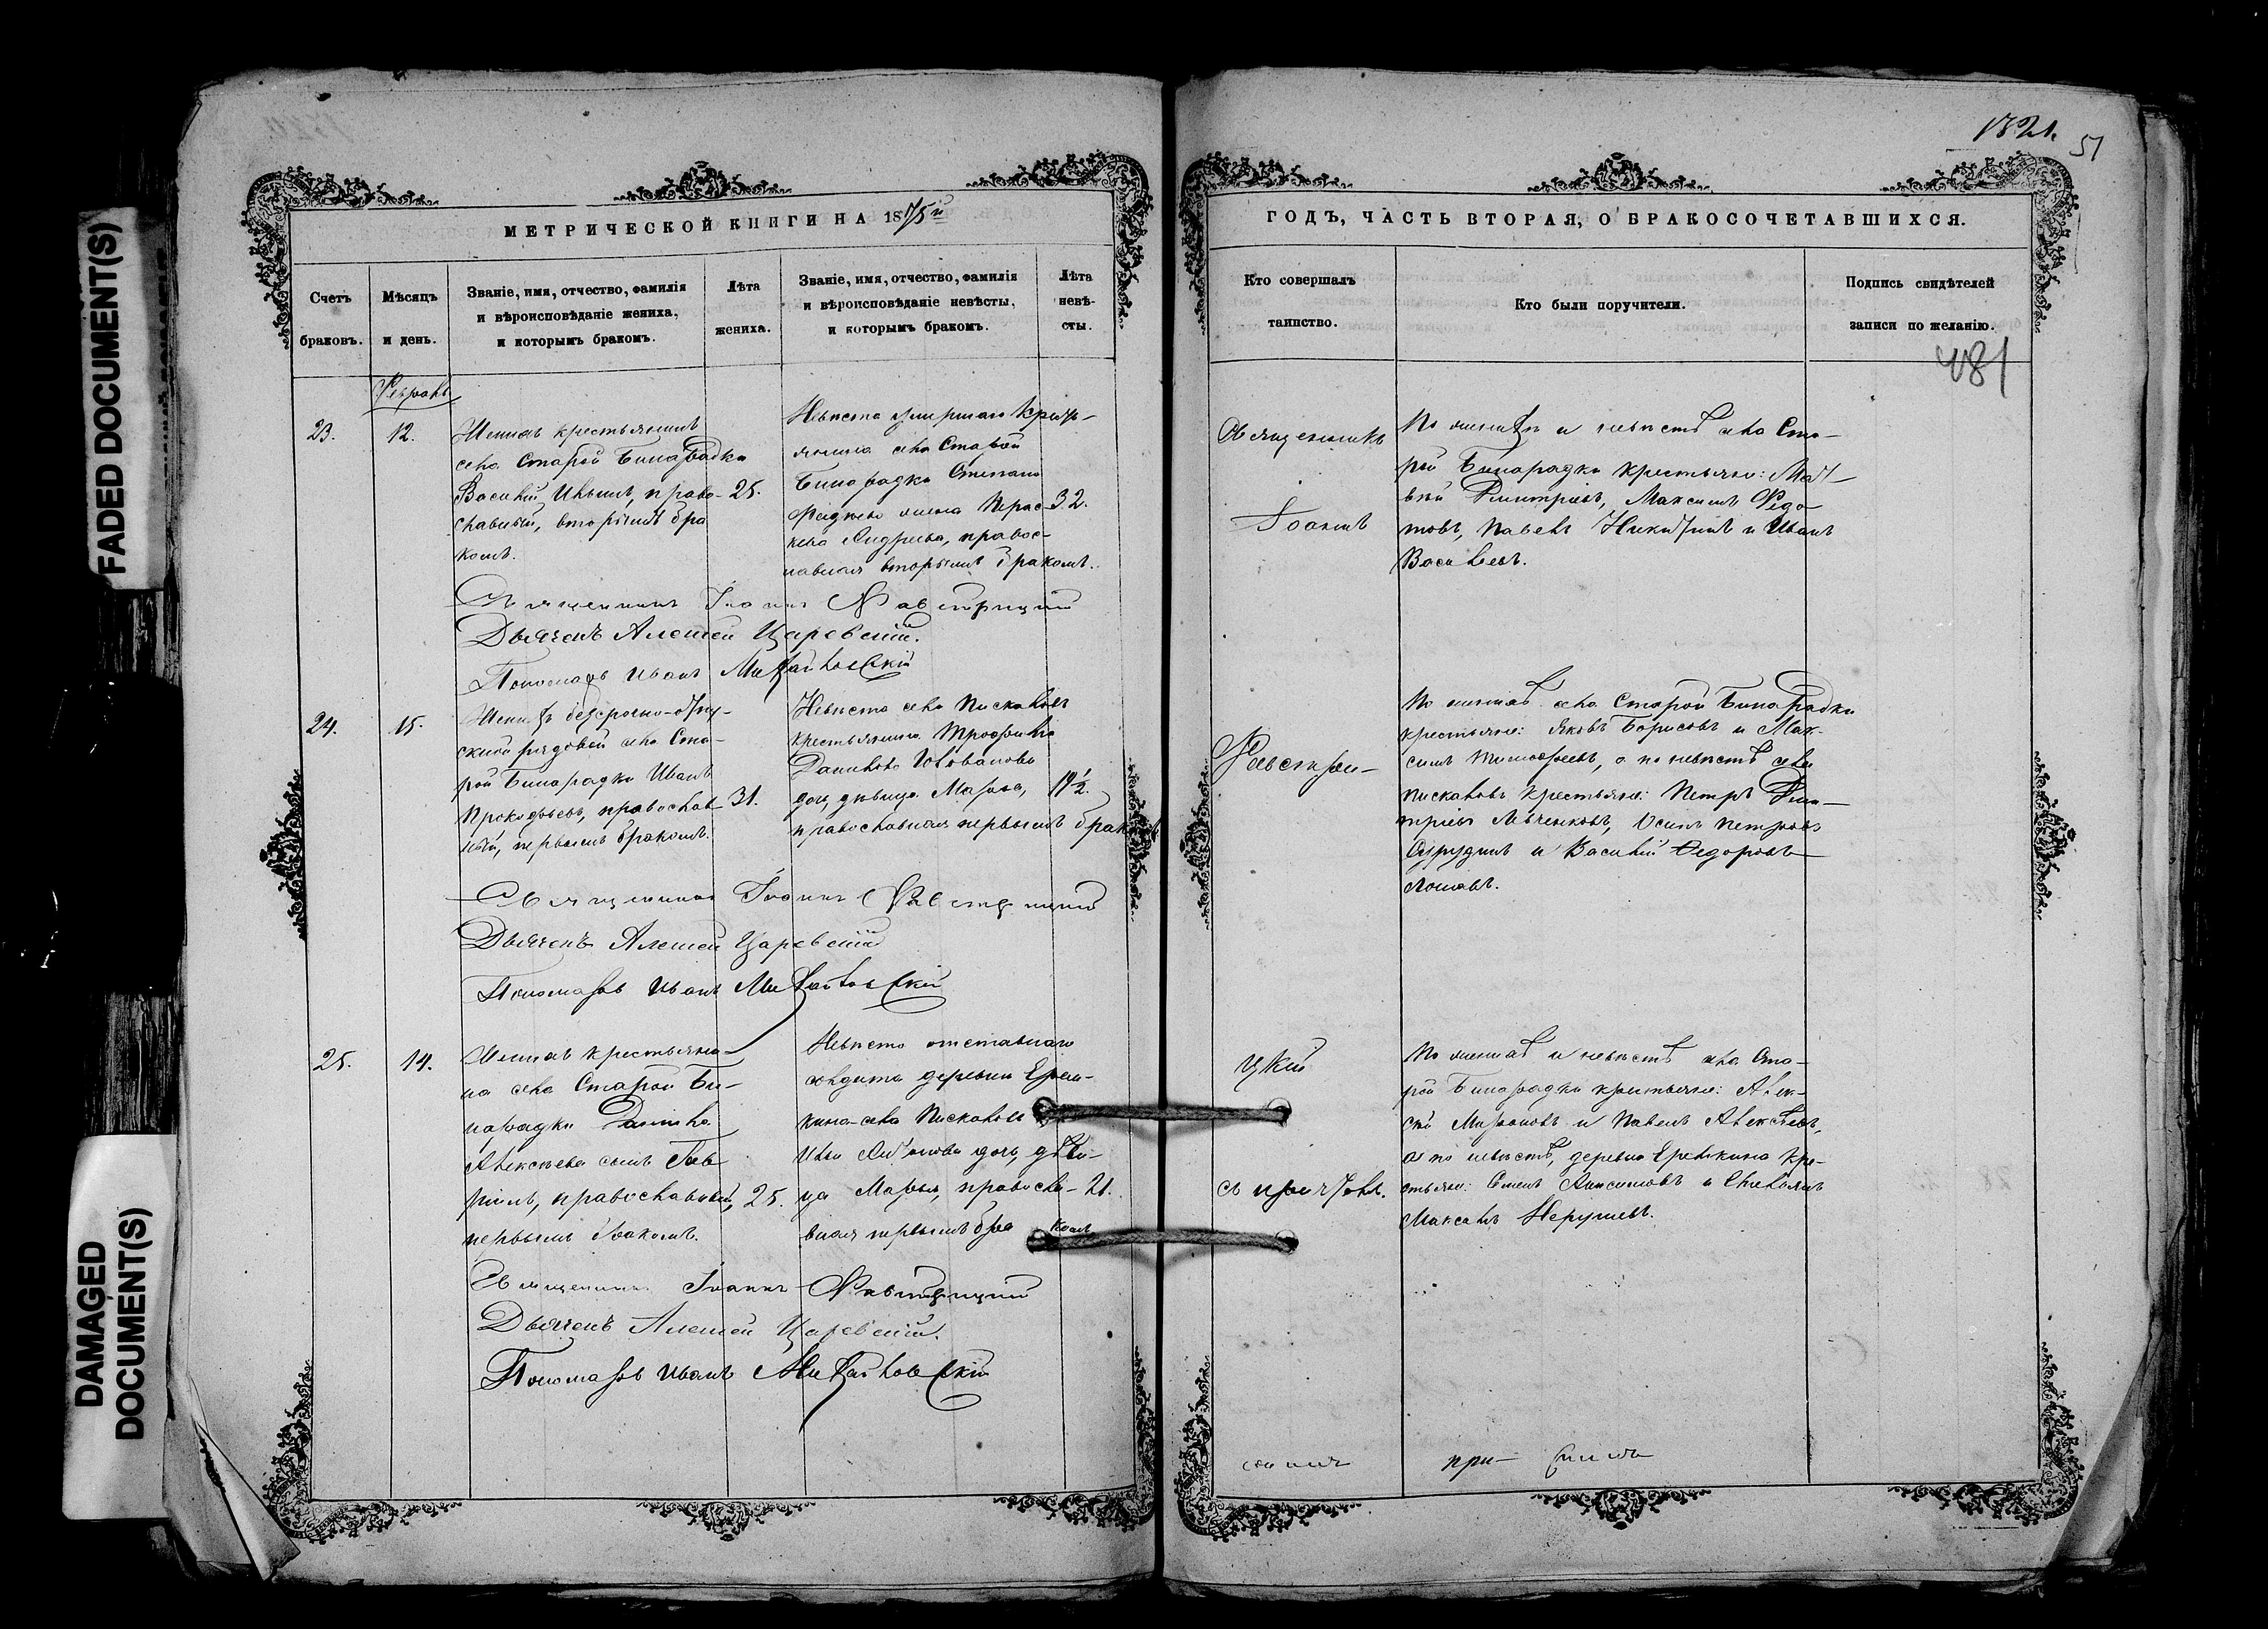 FADED DOCUMENT(S)
DAMAGED
DOCUMENT(S)
МЕТРИЧЕСКОЙ КНИГИ НА 1875й
Счетъ
браковъ.
Мѣсяцъ
и день.
Званіе, имя, отчество, фамилія
и вѣроисповѣданіе жениха,
и которымъ бракомъ.
Лѣта
жениха.
Званіе, имя, отчество, фамилія
и вѣроисповѣданіе невѣсты,
и которымъ бракомъ.
Лѣта
невѣ-
сты.
Февраль
23.
12.
Женихъ крестьянинъ
села Старой Бинарадки
Василій Ивинъ, право-
славный, вторымъ бра
комъ.
25.
Невѣста умершаго кресть-
янина села Старой
Бинарадки Степана
жена Парас-
кева Андреева, правос-
лавная вторымъ бракомъ.
32.
Священникъ Іоаннъ
Дьячекъ Алексей Царевскій.
Пономарь Иванъ Михайловскій
24.
15.
Женихъ безсрочно-отпу-
скной рядовой села Ста-
рой Бинарадки Иванъ
Прокофьевъ, православ
ный, первымъ бракомъ.
31.
Невѣста села Пискаловъ
крестьянина Трофима
Данилова
дочь, дѣвица Марѳа,
православная первымъ бракомъ
19½.
Священникъ Іоаннъ
Дьячекъ Алексей Царевскій
Пономарь Иванъ Михайловскій
25.
14.
Женихъ крестьяни-
на села Старой Би-
нарадки Данила
Алексѣева сынъ Гав
ріилъ, православный,
первымъ бракомъ.
25.
Невѣста отставнаго
солдата деревни Ерем-
кина села Пискаловъ
Ильи Антонова дочь, дѣви-
ца Марья, правосла-
вная первымъ бра комъ
21.
Священникъ Іоаннъ
Дьячекъ Алексей Царевскій.
Пономарь Иванъ Михайловскій
1321.
51
ГОДЪ, ЧАСТЬ ВТОРАЯ, О БРАКОСОЧЕТАВШИХСЯ.
Кто совершалъ
таинство.
Кто были поручители.
Подпись свидѣтелей
записи по желанію.
481
Священникъ
Іоаннъ
цкій
съ причтомъ.
По женихѣ и невѣстѣ села Ста-
рой Бинарадки крестьяне: Мат-
вѣй Дмитріевъ, Максимъ Федо-
товъ, Павелъ Никитинъ и Иванъ
Васильевъ.
По женихѣ села Старой Бинарадки
крестьяне: Яковъ Борисовъ и Мак-
симъ Тимофеевъ, а по невѣстѣ села
Пискаловъ крестьяне: Петръ Дми-
тріевъ Осипъ Петровъ
и Василій Федоровъ
По женихѣ и невѣстѣ села Ста-
рой Бинарадки крестьяне: Алек-
сѣй Мироновъ и Павелъ Алексѣевъ,
а по невѣстѣ, деревни Еремкина кре-
стьяне: